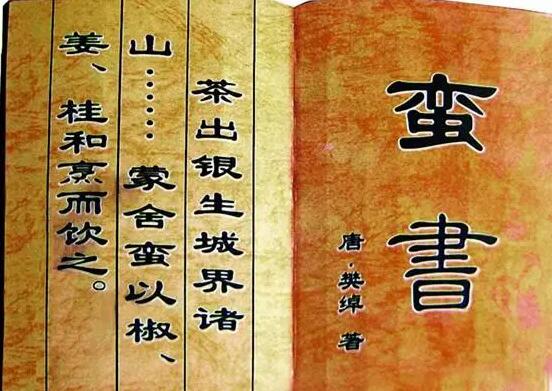 蛮書
唐·樊绰 著
茶出银生城界诸
山……蒙舍蛮以椒、
姜、桂和烹而饮之。